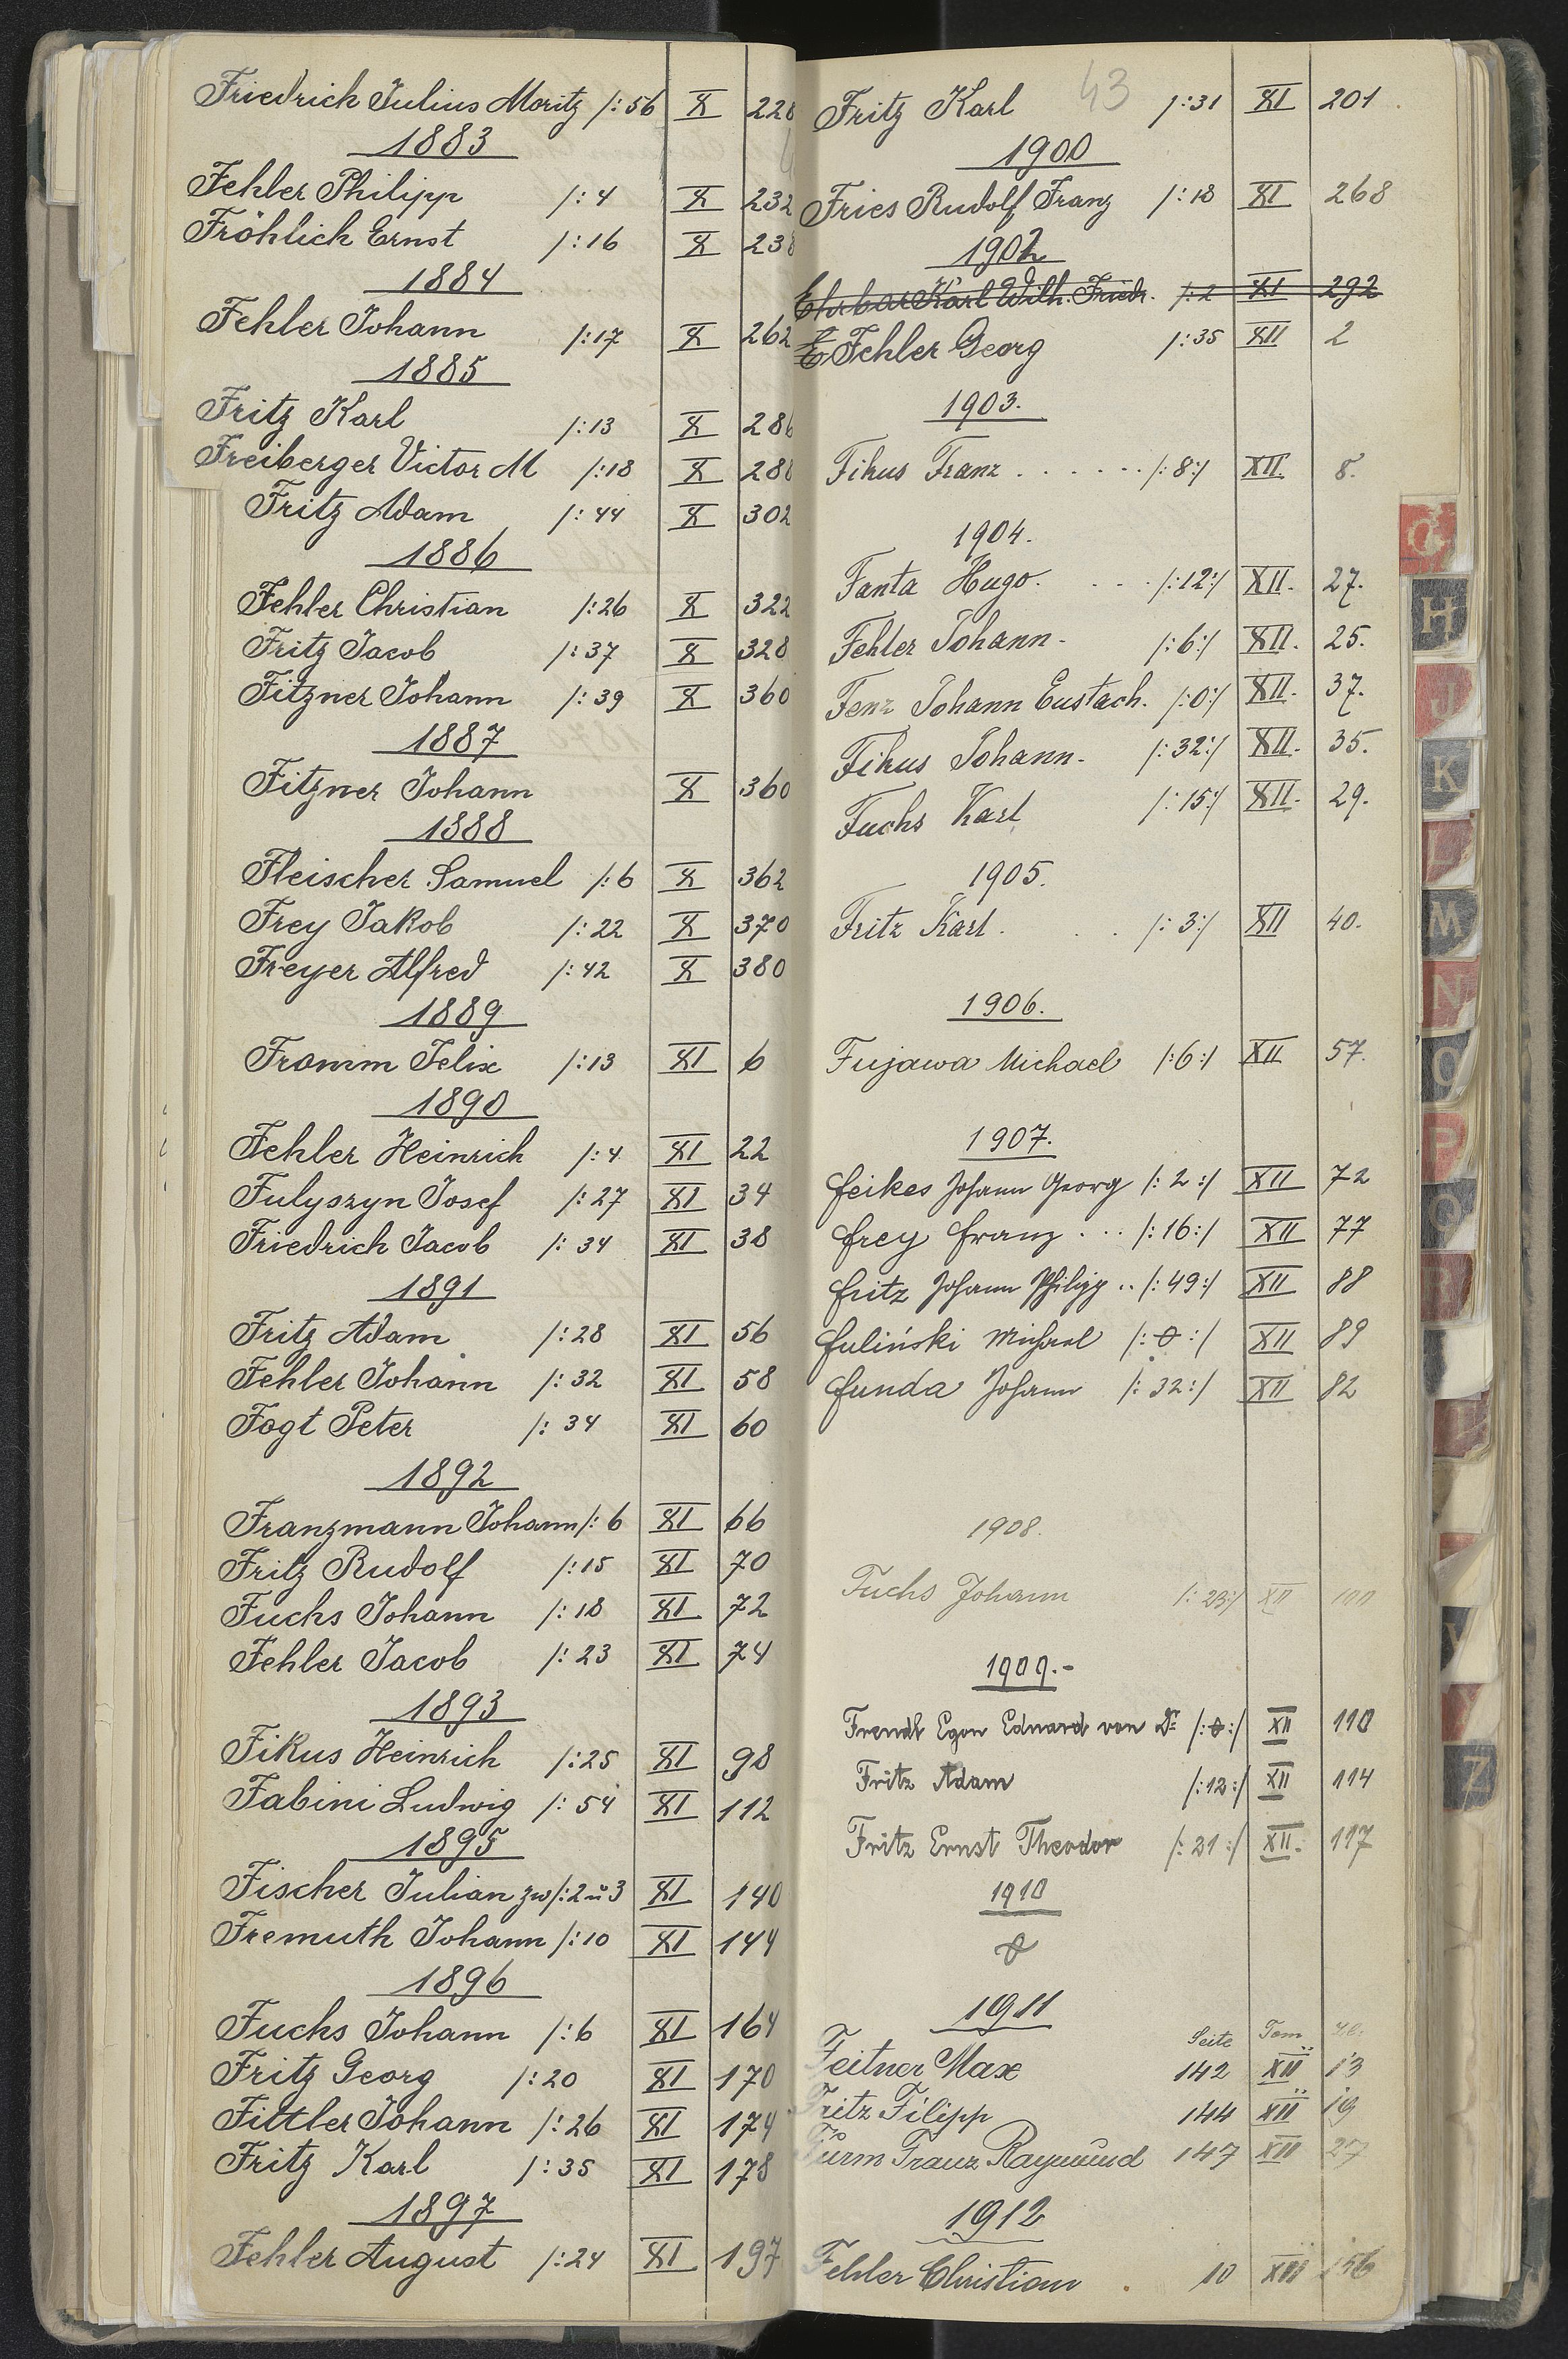 Friedrich Julius Moritz /: 56 X 228
1883
Fehler Philipp /: 4 X 232
Fröhlich Ernst /: 16 X 238
1884
Fehler Johann /: 17 X 262
1885
Fritz Karl /: 13 X 286
Freiberger Victor M /: 18 X 288
Fritz Adam /: 44 X 302
1886
Fehler Christian /: 26 X 322
Fritz Jacob /: 37 X 328
Fitzner Johann /: 39 X 360
1887
Fitzner Johann X 360
1888
Fleischer Samuel /: 6 X 362
Frey Jakob /: 22 X 370
Freyer Alfred /: 42 X 380
1889
Fromm Felix /: 13 XI 6
1890
Fehler Heinrich /: 4 XI 22
Fulyszyn Josef /: 27 XI 34
Friedrich Jacob /: 34 XI 38
1891
Fritz Adam /: 28 XI 56
Fehler Johann /: 32 XI 58
Fogt Peter /: 34 XI 60
1892
Franzmann Johann /: 6 XI 66
Fritz Rudolf /: 15 XI 70
Fuchs Johann /: 18 XI 72
Fehler Jacob /: 23 XI 74
1893
Fikus Heinrich /: 25 XI 98
Fabini Ludwig /: 54 XI 112
1895
Fischer Julian zw /: 2 u 3 XI 140
Fremuth Johann /: 10 XI 144
1896
Fuchs Johann /: 6 XI 164
Fritz Georg /: 20 XI 170
Fittler Johann /: 26 XI 174
Fritz Karl /: 35 XI 178
1897
Fehler August /: 24 XI 197
43
Fritz Karl /: 31 XI 201
1900
Fries Rudolf Franz /: 18 XI 268
1902
Ehrbar Karl Wilh. Friedr. /: 2 XI 292
E Fehler Georg /: 35 XII 2
1903.
Fikus Franz . . . . . . /: 8:/ XII. 8.
1904.
Fanta Hugo. . . . /: 12:/ XII. 27.
Fehler Johann- /: 6:/ XII. 25.
Fenz Johann Eustach. /: 0:/ XII. 37.
Fikus Johann- /: 32:/ XII. 35.
Fuchs Karl /: 15:/ XII. 29.
1905.
Fritz Karl . . . /: 3:/ XII 40.
1906.
Fujawa Michael /: 6:/ XII 57.
1907.
Feikes Johann Georg /: 2 :/ XII 72
Frey Franz . . . /: 16:/ XII 77
Fritz Johann Philipp .. /: 49:/ XII 88
Fuliński Michael /: 0 :/ XII 89
Funda Johann /: 32:/ XII 82
1908.
Fuchs Johann /: 23:/ XII 100
1909.-
Frendl Egon Eduard von Dr /: 0:/ XII 110
Fritz Adam /: 12:/ XII 114
Fritz Ernst Theodor /: 21 :/ XII. 117
1910
0
1911
Seite Tom
Feitner Max 142 XII 13
Fritz Filipp 144 XII 19
Furm Franz Raymund 147 XII 27
1912
Fehler Christian . 10 XIII 156
G
H
J
K
L
M
N
O
P
Q
R
U
V
Y
Z